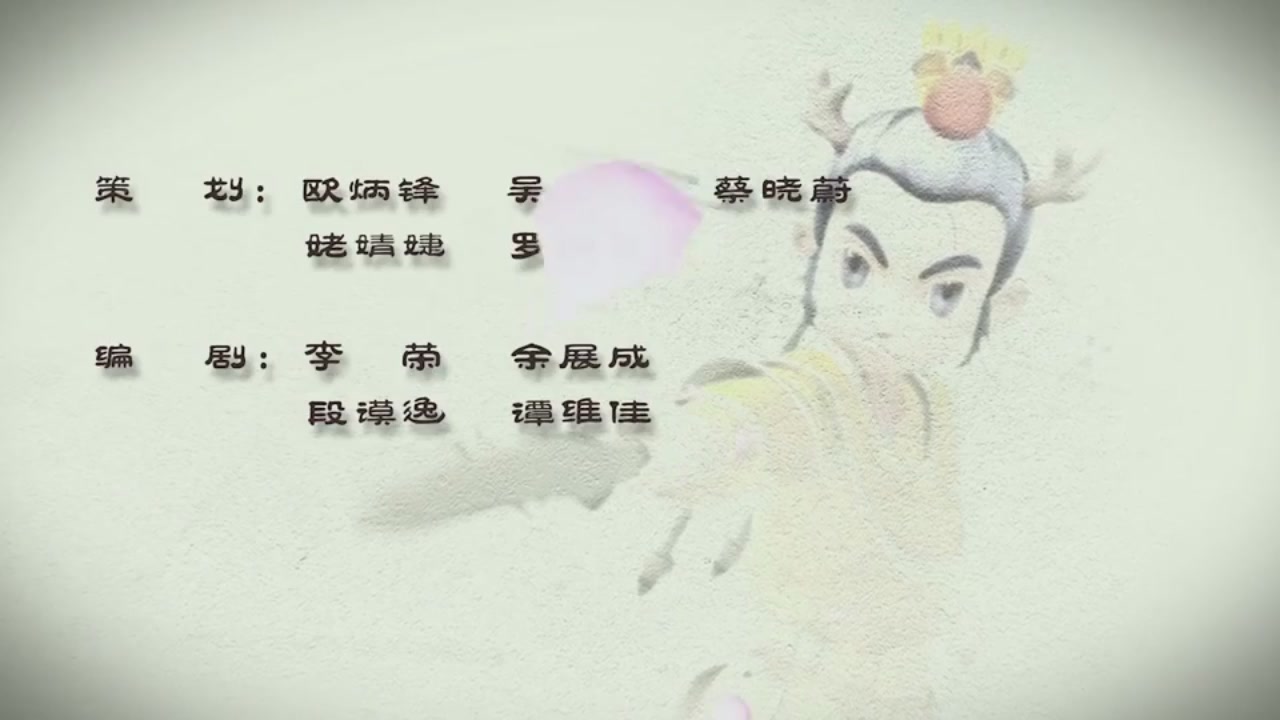 策 划：欧炳锋 吴 蔡晓蔚
姥婧婕 罗
编 剧：李 荣 余展成
段谟逸 谭维佳